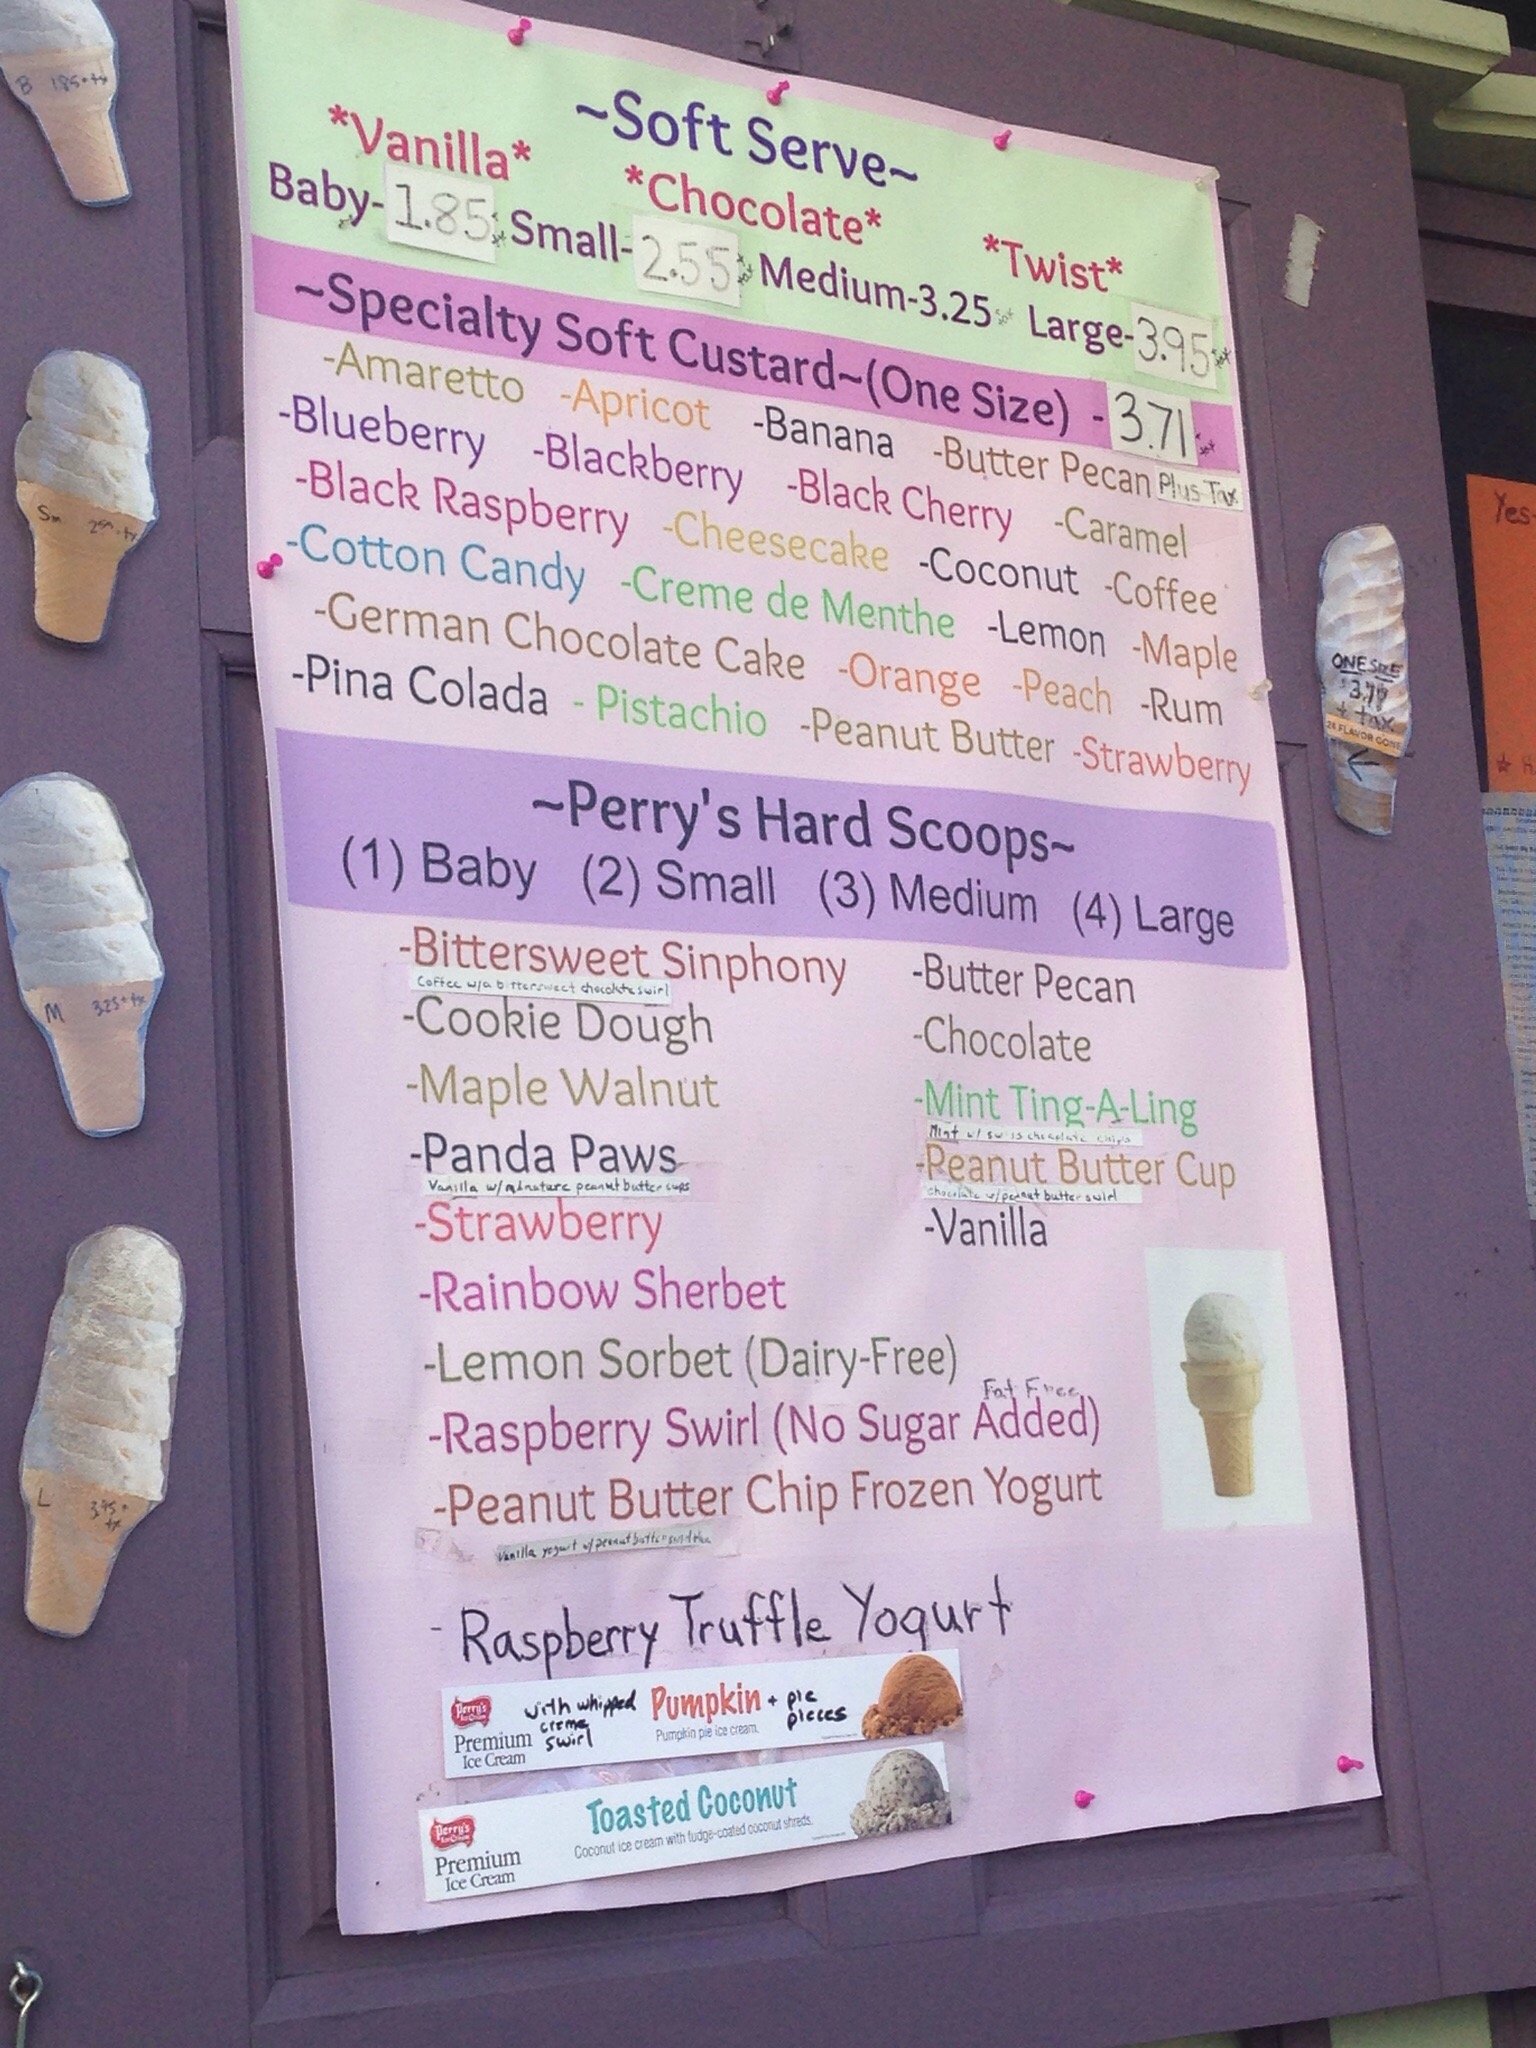 ~Soft Serve~
*Vanilla* *Chocolate* *Twist*
Baby-1.85 Small-2.55 Medium-3.25 Large-3.95
~Specialty Soft Custard~(One Size) - 3.71
Plus Tax
-Amaretto -Apricot -Banana -Butter Pecan
-Blueberry -Blackberry -Black Cherry -Caramel
-Black Raspberry -Cheesecake -Coconut -Coffee
-Cotton Candy -Creme de Menthe -Lemon -Maple
-German Chocolate Cake -Orange -Peach -Rum
-Pina Colada - Pistachio -Peanut Butter -Strawberry
~Perry's Hard Scoops~
(1) Baby (2) Small (3) Medium (4) Large
-Bittersweet Sinphony
Coffee w/a bittersweet chocolate swirl
-Cookie Dough
-Maple Walnut
-Panda Paws
Vanilla w/ miniature peanut butter cups
-Strawberry
-Rainbow Sherbet
-Lemon Sorbet (Dairy-Free)
Fat Free
-Raspberry Swirl (No Sugar Added)
-Peanut Butter Chip Frozen Yogurt
Vanilla yogurt w/peanut butter
-Butter Pecan
-Chocolate
-Mint Ting-A-Ling
Mint w/ swiss chocolate chips
-Peanut Butter Cup
chocolate w/peanut butter swirl
-Vanilla
- Raspberry Truffle Yogurt
Perry's
Ice Cream
Premium
Ice Cream
with whipped
creme
swirl
Pumpkin + pie
pieces
Pumpkin pie ice cream.
Perry's
Ice Cream
Premium
Ice Cream
Toasted Coconut
Coconut ice cream with fudge-coated coconut shreds.
B 1.85+tx
Sm
M 3.25+tx
L 3.95+
tx
ONE SIZE
+ tax
24 FLAVOR CONE
Yes-